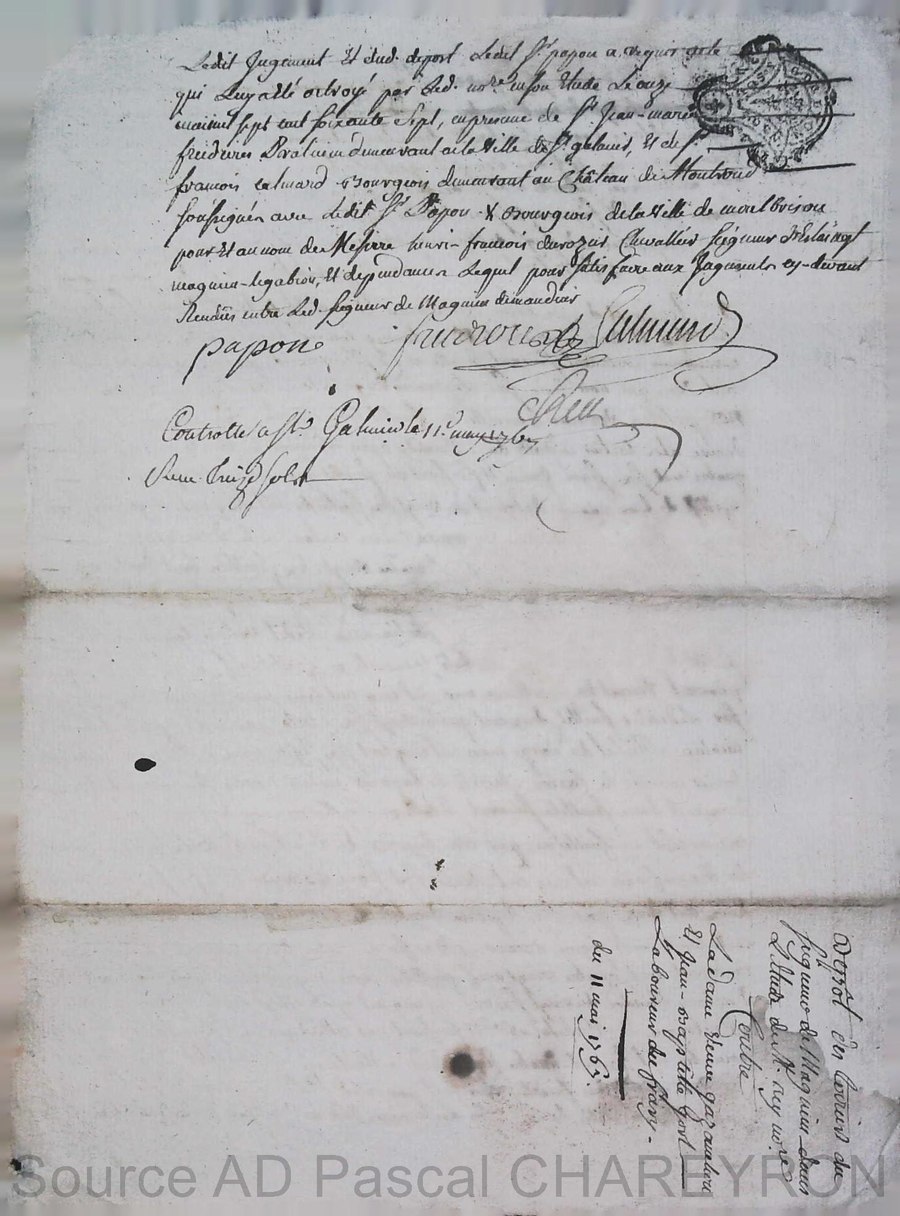 Ledit Jugement Et dud. deport Ledit Sr. papon a requis acte
qui Luy a été octroyé par Led. nore. en son Etude Le onze
mai mil sept cent soixante Sept, en presence de Sr. Jean-marie
demeurant a la Ville de St. galmier, Et de Sr.
francois Calmard Bourgeois demeurant au Château de Montrond
soussignés avec Ledit Sr. Papon Bourgeois de la Ville de montbrison
pour Et au nom de Messire henri-francois Chevallier seigneur
magnieu-le gabion, Et dependances Lequel pour satisfaire aux Jugements cy-devant
Rendües entre Led. seigneur de Magnieu
papon
Calmard
Controllé a St. Galmier le 11e. may 1767
Reçu treize sols
Depôt des du
seigneur de Magnieu dans
L'Etude de Mr. rey nore.
Contre
La dame Veuve
Et Jean-Baptiste
Laboureur du
du 11 mai 1767.
Source AD Pascal CHAREYRON